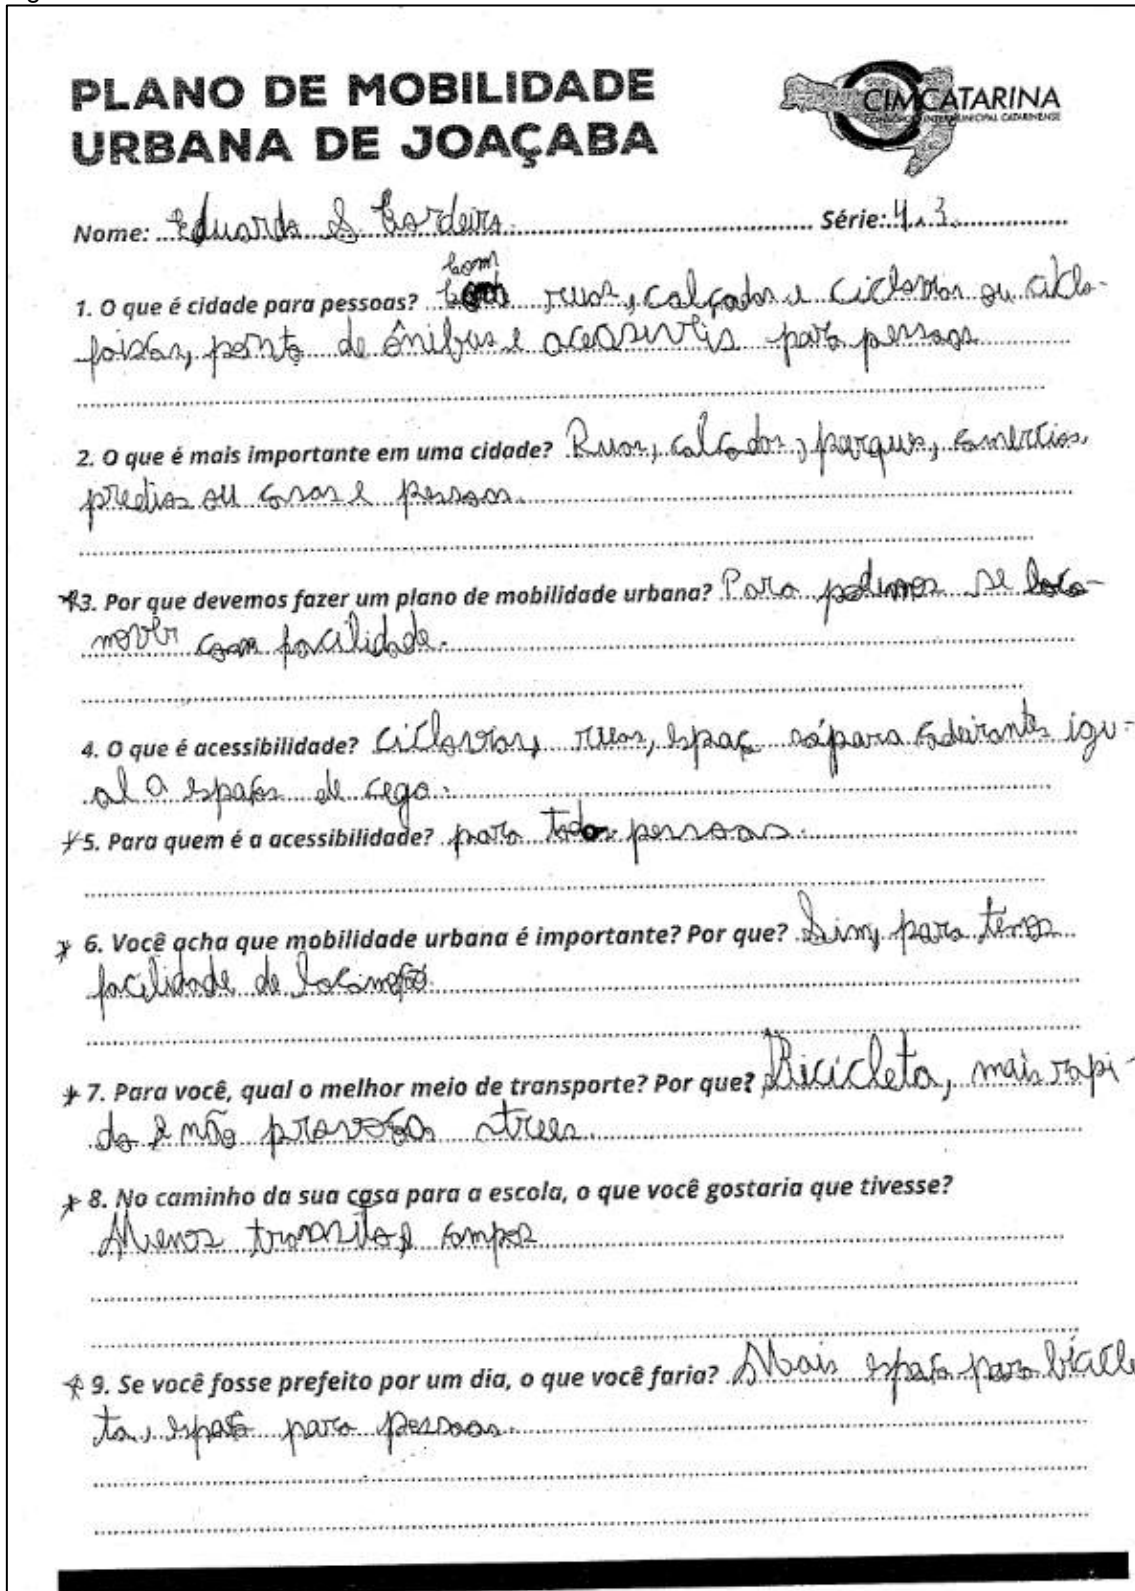 PLANO DE MOBILIDADE
URBANA DE JOAÇABA
CIMCATARINA
CONSÓRCIO INTERMUNICIPAL CATARINENSE
Nome: Eduardo S Cordeiro. Série: 4.3.
com
1. O que é cidade para pessoas? ruas, calçadas e ciclovias ou ciclo-
faixas, ponto de ônibus e acessiveis para pessoas
2. O que é mais importante em uma cidade? Ruas, calçadas, parques, comercios,
predios ou casas e pessoas.
3. Por que devemos fazer um plano de mobilidade urbana? Para podemos se loco-
mover com facilidade.
4. O que é acessibilidade? Ciclovias, ruas, espaç só para cadeirantes igu-
al a espaços de cego.
5. Para quem é a acessibilidade? para todas pessoas.
6. Você acha que mobilidade urbana é importante? Por que? Sim, para termos
facilidade de
7. Para você, qual o melhor meio de transporte? Por que? Bicicleta, mais rapi-
da e não
8. No caminho da sua casa para a escola, o que você gostaria que tivesse?
Menos transito e campos
9. Se você fosse prefeito por um dia, o que você faria? Mais espaço para bicicle
ta, espaço para pessoas.